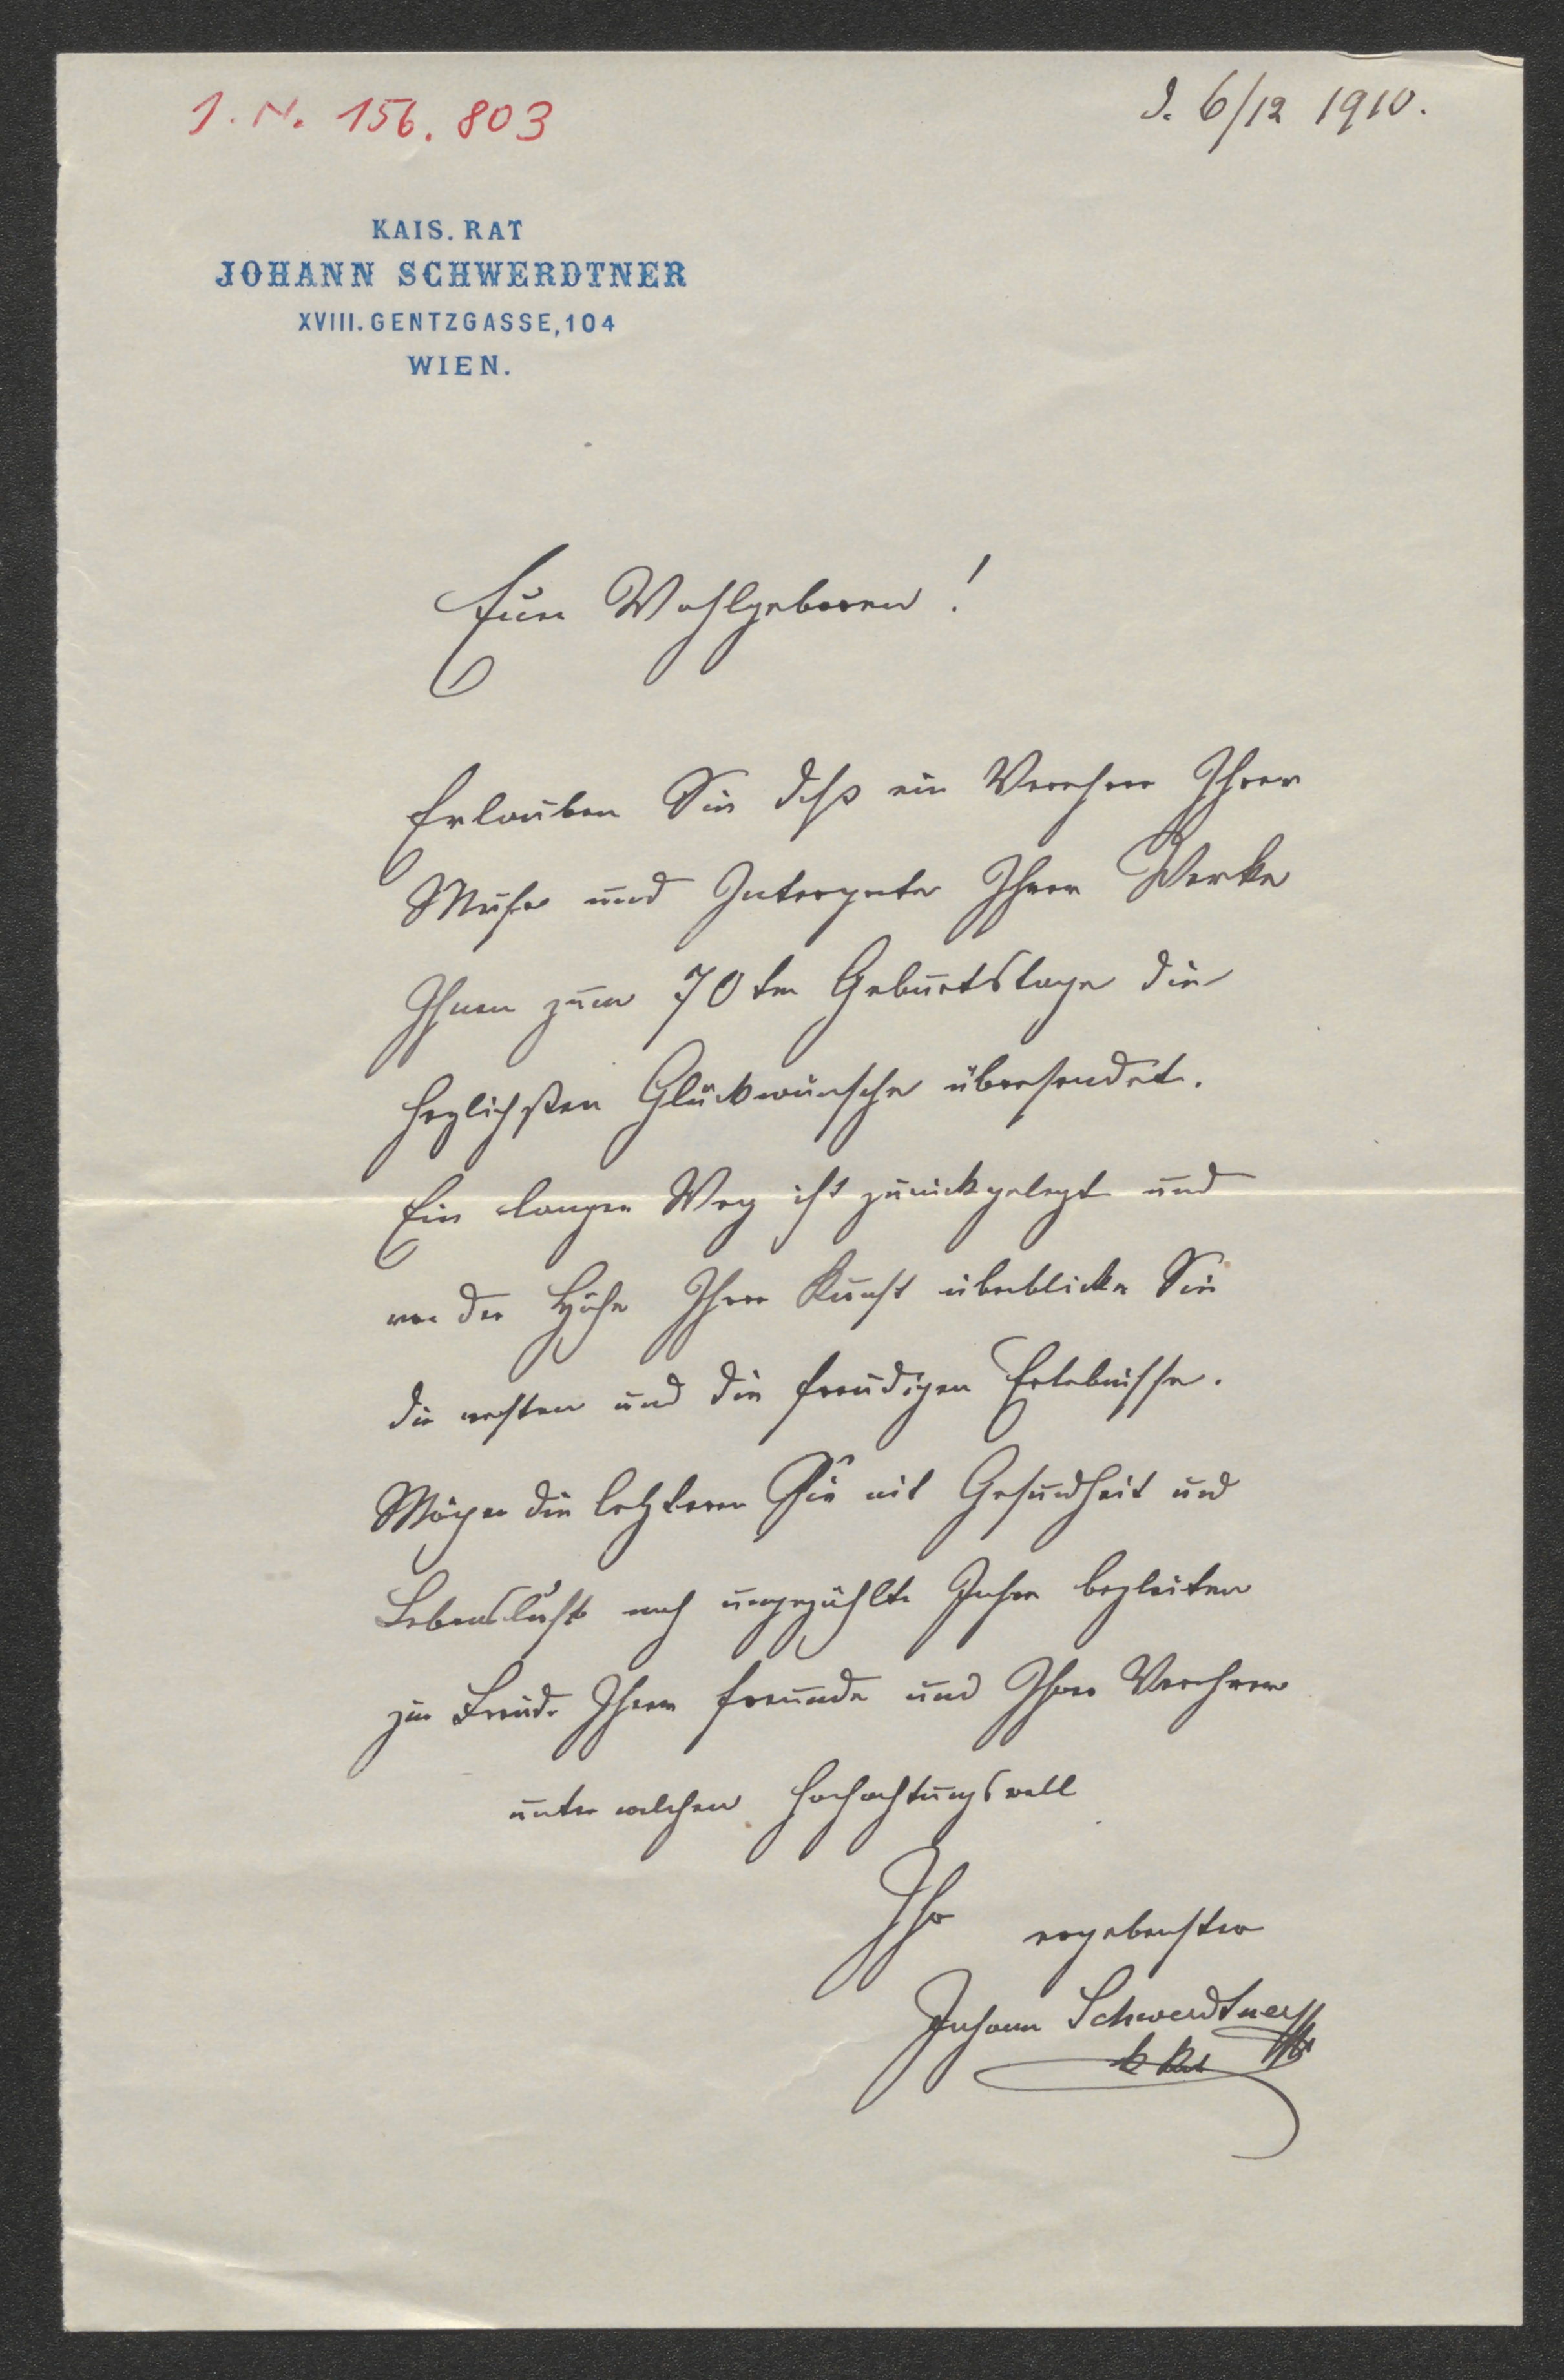 J. N. 156.803
d. 6/12 1910.
KAIS. RAT
JOHANN SCHWERDTNER
XVIII. GENTZGASSE, 104
WIEN.
Euer Wohlgeboren!
Erlauben Sie daß ein Verehrer Ihrer
Muse und Interprete Ihrer Werke
Ihnen zum 70ten Geburtstage die
herzlichsten Glückwünsche übersendet.
Ein langer Weg ist zurückgelegt und
von der Höhe Ihrer Kunst überblicken Sie
die ersten und die freudigen Erlebnisse.
Mögen die letzteren Sie mit Gesundheit und
Lebenslust noch ungezählte Jahre begleiten
zur Freude Ihrer Freunde und Ihrer Verehrer
unter welchen hochachtungsvoll
Ihr ergebenster
Johann Schwerdtner
k Rat